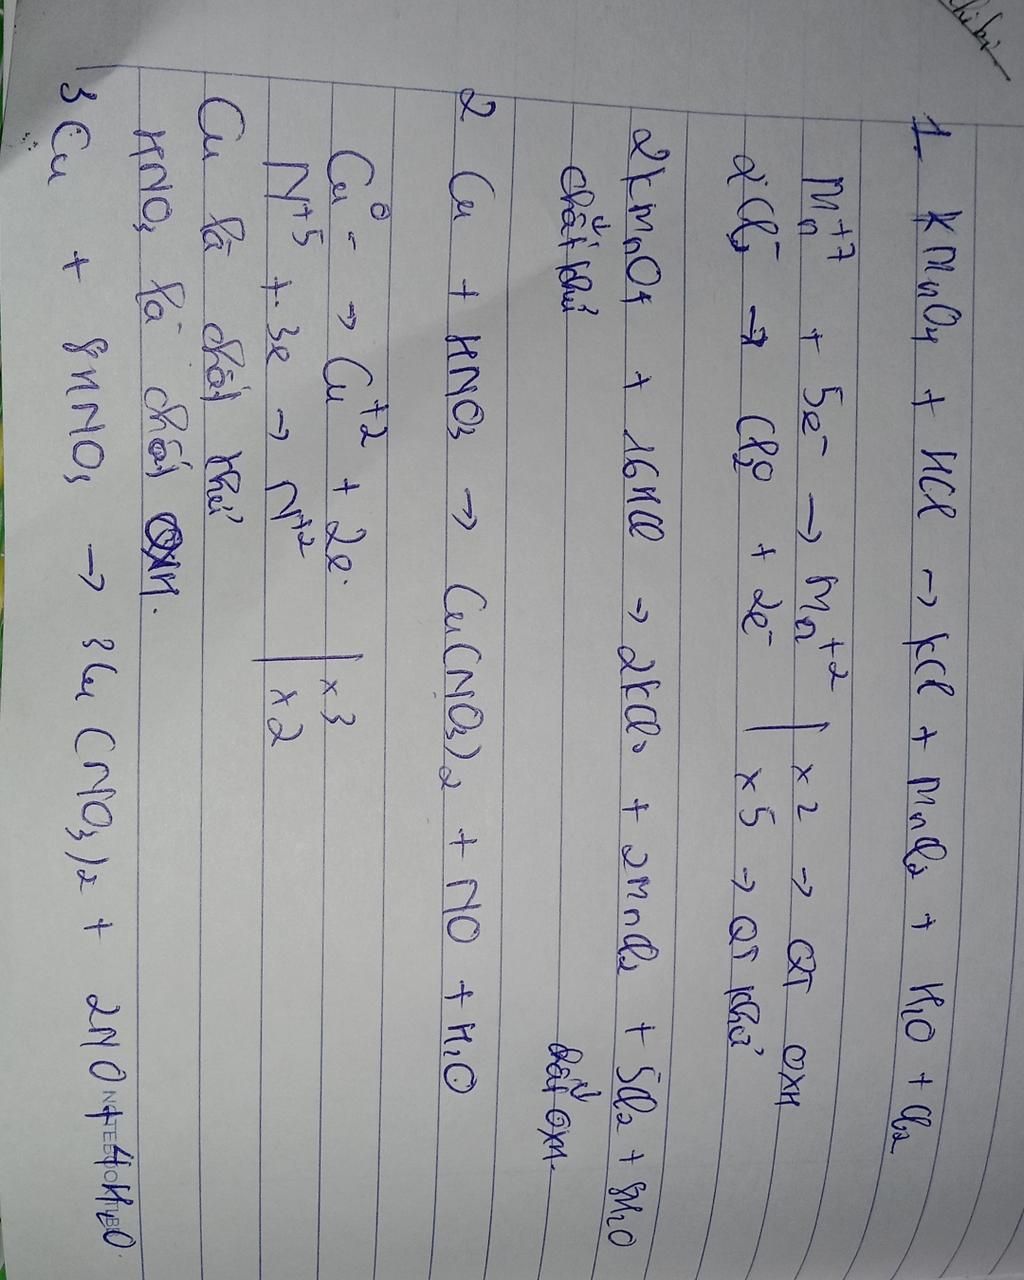 1. KMnO4 + HCl → KCl + MnCl2 + H2O + Cl2
Mn+7 + 5e- → Mn+2 | x 2 → QT OXH
2Cl- → Cl20 + 2e- | x 5 → QT khử
2KMnO4 + 16HCl → 2KCl + 2MnCl2 + 5Cl2 + 8H2O
chất khử chất OXH.
2 Cu + HNO3 → Cu(NO3)2 + NO + H2O
Cu0 - → Cu+2 + 2e. | x 3
N+5 + 3e → N+2 | x 2
Cu là chất khử
HNO3 là chất OXH.
3Cu + 8HNO3 → 3Cu(NO3)2 + 2NO + 4H2O.